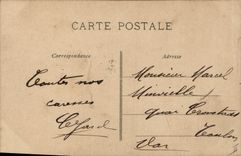 CARTE POSTALE
Correspondance
Adresse
Toutes nos
caresses
Monsieur Marcel
Minvielle
quai Cronstadt
Toulon
Var